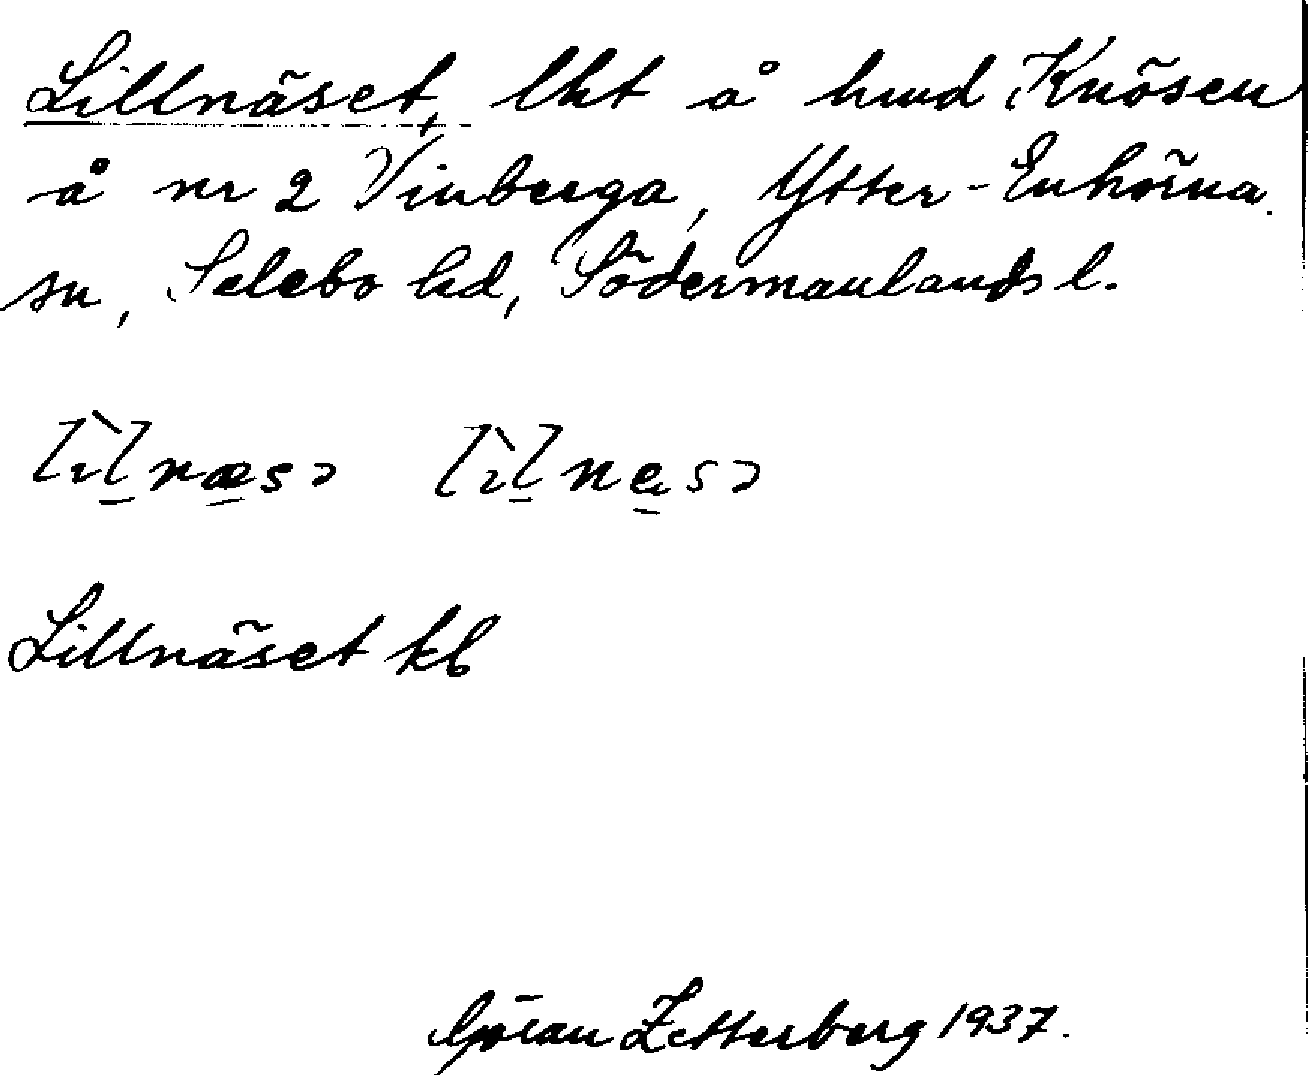 Lillnäset, lht å hmd Knösen
å nr 2 Vinberga, Ytter-Enhörna
sn, Selebo hd, Södermanlands l.
lìl̠næ̠sɔ lìl̠ne̠sɔ
Lillnäset kb
Göran Zetterberg 1937.